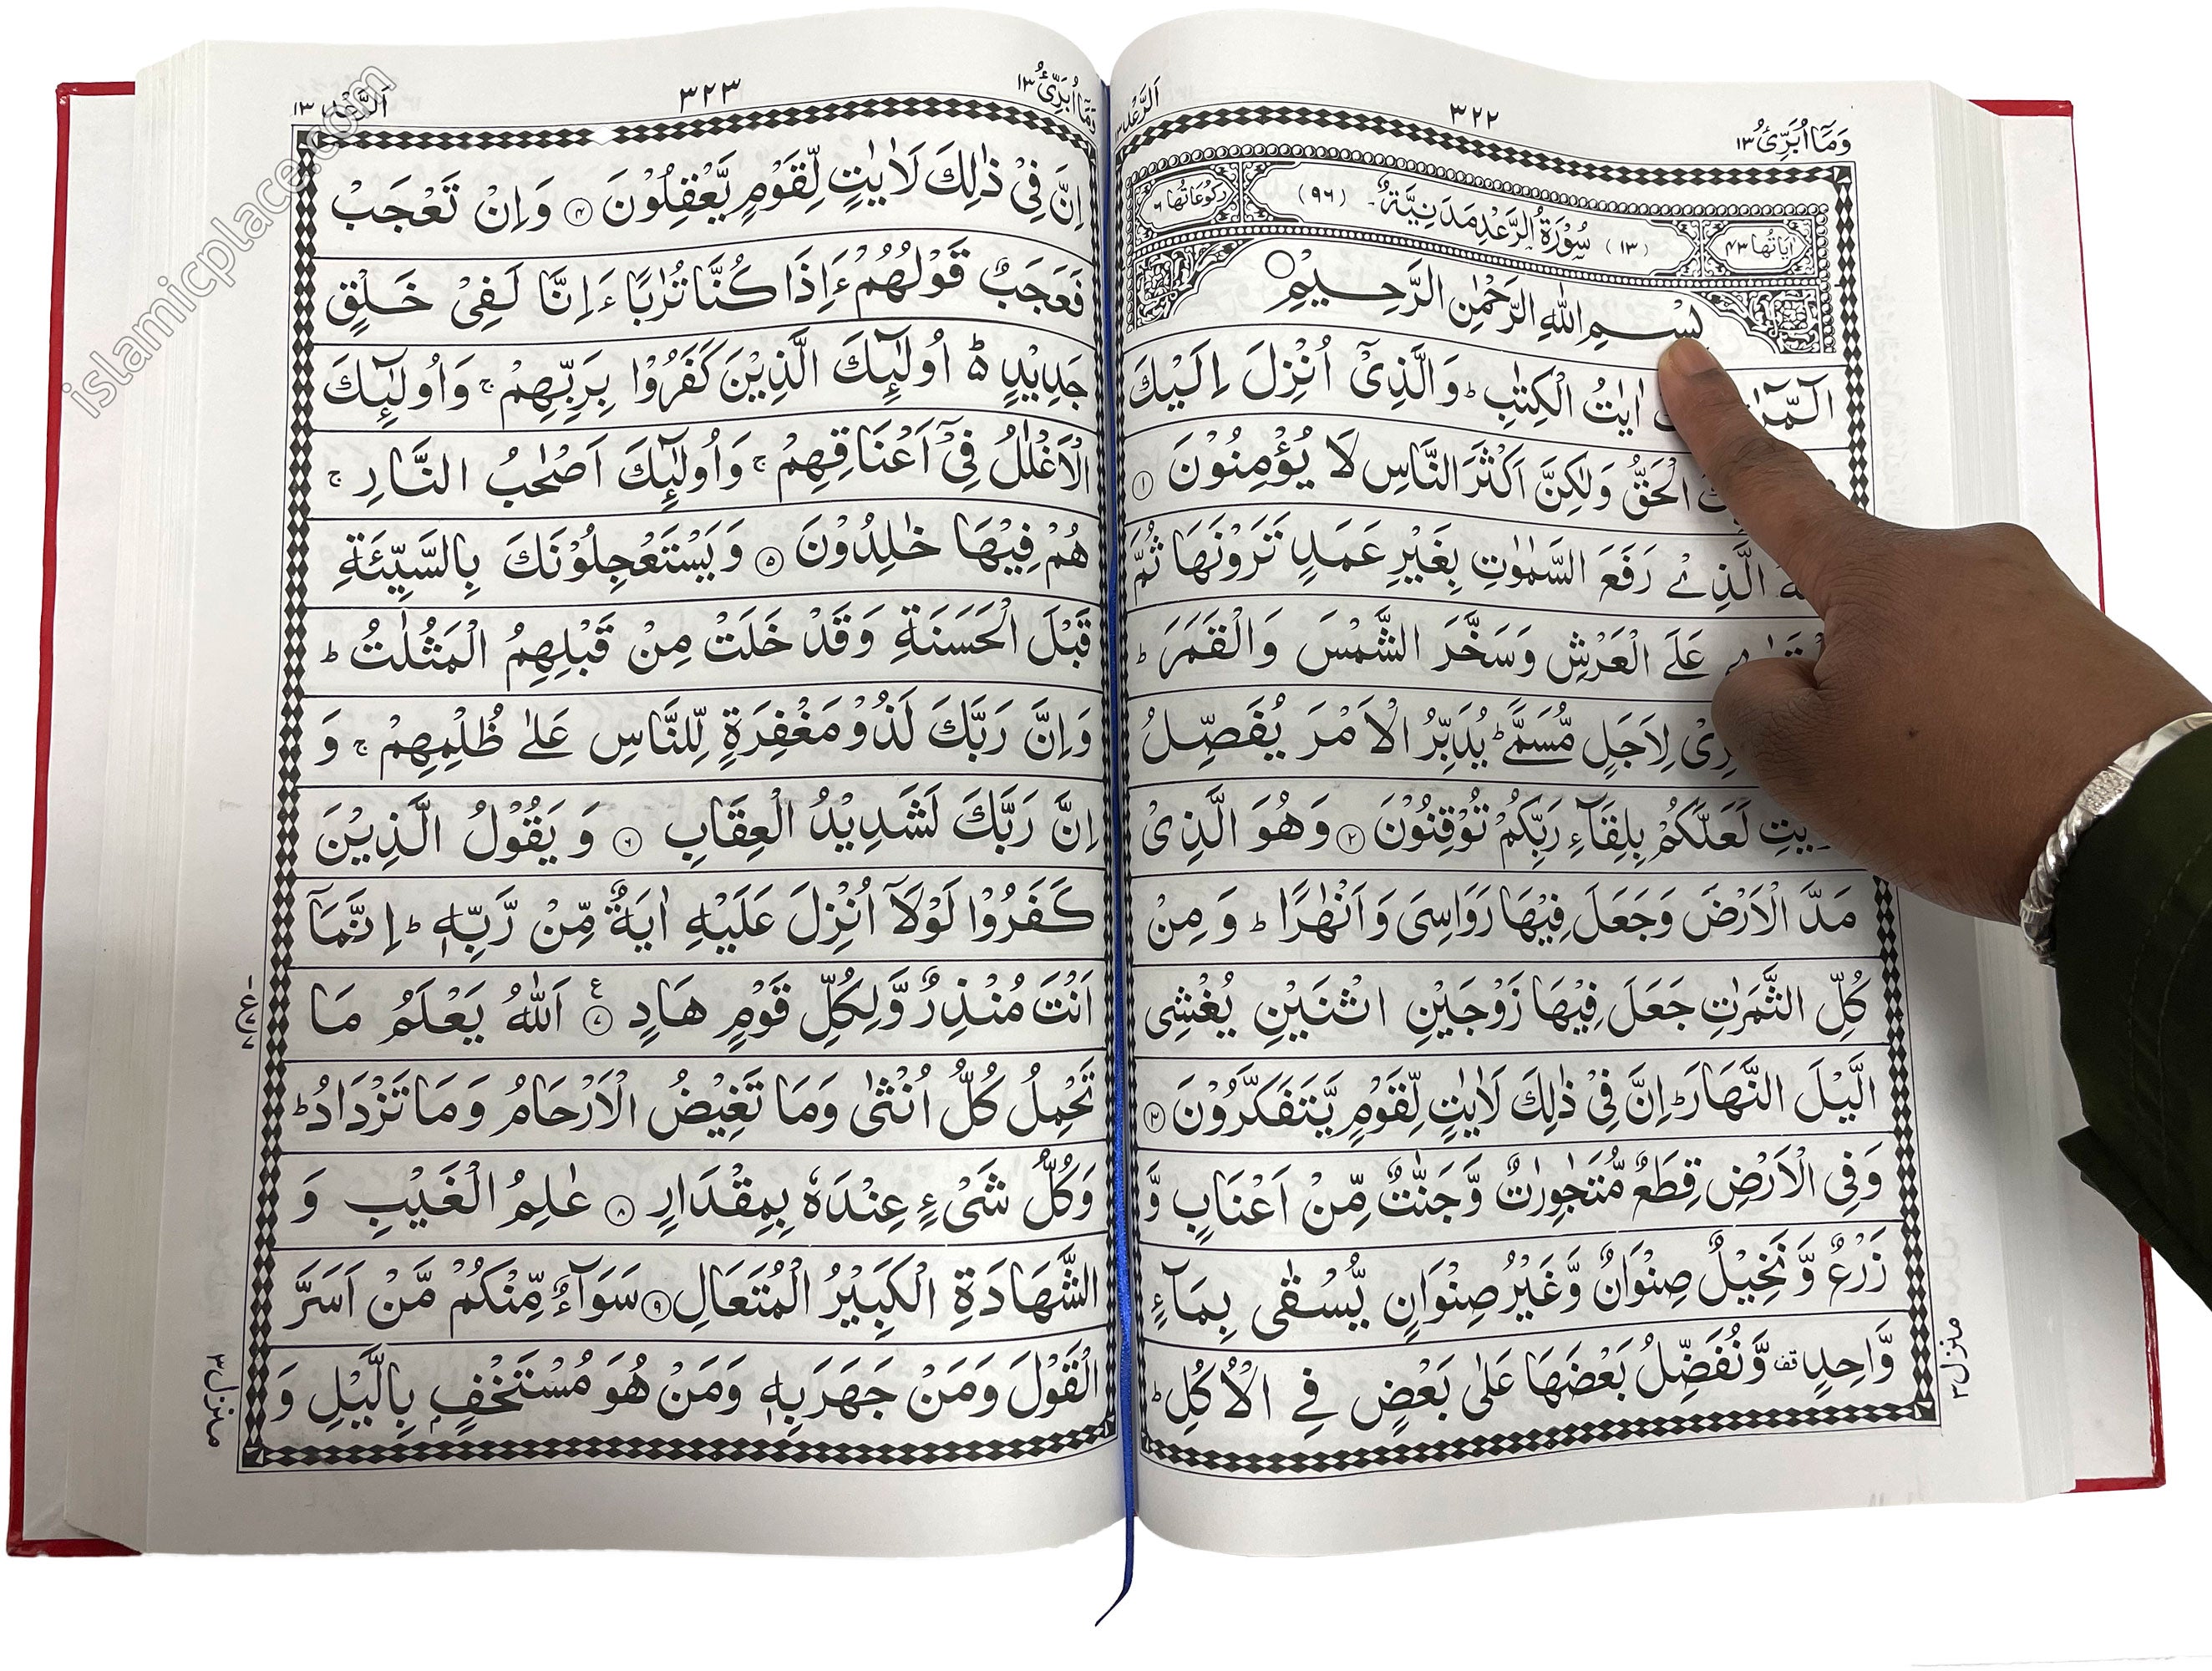 وَمَآ اُبَرِّئُ ١٣
٣٢٢
اَلرَّعْد ١٣
اٰيَاتُهَا ٤٣
(١٣) سُوْرَةُ الرَّعْدِ مَدَنِيَّةٌ (٩٦)
رُكُوْعَاتُهَا ٦
بِسْمِ اللّٰهِ الرَّحْمٰنِ الرَّحِيْمِ
الٓمّٓرٰ اٰيٰتُ الْكِتٰبِ ؕ وَالَّذِيْٓ اُنْزِلَ اِلَيْكَ
الْحَقُّ وَلٰكِنَّ اَكْثَرَ النَّاسِ لَا يُؤْمِنُوْنَ ١
الَّذِيْ رَفَعَ السَّمٰوٰتِ بِغَيْرِ عَمَدٍ تَرَوْنَهَا ثُمَّ
عَلَى الْعَرْشِ وَسَخَّرَ الشَّمْسَ وَالْقَمَرَ ؕ
لِاَجَلٍ مُّسَمًّى ؕ يُدَبِّرُ الْاَمْرَ يُفَصِّلُ
لَعَلَّكُمْ بِلِقَآءِ رَبِّكُمْ تُوْقِنُوْنَ ٢ وَهُوَ الَّذِيْ
مَدَّ الْاَرْضَ وَجَعَلَ فِيْهَا رَوَاسِيَ وَاَنْهٰرًا ؕ وَمِنْ
كُلِّ الثَّمَرٰتِ جَعَلَ فِيْهَا زَوْجَيْنِ اثْنَيْنِ يُغْشِي
الَّيْلَ النَّهَارَ ؕ اِنَّ فِيْ ذٰلِكَ لَاٰيٰتٍ لِّقَوْمٍ يَّتَفَكَّرُوْنَ ٣
وَفِي الْاَرْضِ قِطَعٌ مُّتَجٰوِرٰتٌ وَّجَنّٰتٌ مِّنْ اَعْنَابٍ وَّ
زَرْعٌ وَّنَخِيْلٌ صِنْوَانٌ وَّغَيْرُ صِنْوَانٍ يُّسْقٰى بِمَآءٍ
وَّاحِدٍ قف وَّنُفَضِّلُ بَعْضَهَا عَلٰى بَعْضٍ فِي الْاُكُلِ ؕ
منزل ٣
وَمَآ اُبَرِّئُ ١٣
٣٢٣
اَلرَّعْد ١٣
اِنَّ فِيْ ذٰلِكَ لَاٰيٰتٍ لِّقَوْمٍ يَّعْقِلُوْنَ ٤ وَاِنْ تَعْجَبْ
فَعَجَبٌ قَوْلُهُمْ ءَاِذَا كُنَّا تُرٰبًا ءَاِنَّا لَفِيْ خَلْقٍ
جَدِيْدٍ ۵ اُولٰٓئِكَ الَّذِيْنَ كَفَرُوْا بِرَبِّهِمْ ج وَاُولٰٓئِكَ
الْاَغْلٰلُ فِيْٓ اَعْنَاقِهِمْ ج وَاُولٰٓئِكَ اَصْحٰبُ النَّارِ ج
هُمْ فِيْهَا خٰلِدُوْنَ ٥ وَيَسْتَعْجِلُوْنَكَ بِالسَّيِّئَةِ
قَبْلَ الْحَسَنَةِ وَقَدْ خَلَتْ مِنْ قَبْلِهِمُ الْمَثُلٰتُ ؕ
وَاِنَّ رَبَّكَ لَذُوْ مَغْفِرَةٍ لِّلنَّاسِ عَلٰى ظُلْمِهِمْ ج وَ
اِنَّ رَبَّكَ لَشَدِيْدُ الْعِقَابِ ٦ وَيَقُوْلُ الَّذِيْنَ
كَفَرُوْا لَوْلَآ اُنْزِلَ عَلَيْهِ اٰيَةٌ مِّنْ رَّبِّهٖ ؕ اِنَّمَآ
اَنْتَ مُنْذِرٌ وَّلِكُلِّ قَوْمٍ هَادٍ ٧ ع اَللّٰهُ يَعْلَمُ مَا
تَحْمِلُ كُلُّ اُنْثٰى وَمَا تَغِيْضُ الْاَرْحَامُ وَمَا تَزْدَادُ ؕ
وَكُلُّ شَيْءٍ عِنْدَهٗ بِمِقْدَارٍ ٨ عٰلِمُ الْغَيْبِ وَ
الشَّهَادَةِ الْكَبِيْرُ الْمُتَعَالِ ٩ سَوَآءٌ مِّنْكُمْ مَّنْ اَسَرَّ
الْقَوْلَ وَمَنْ جَهَرَ بِهٖ وَمَنْ هُوَ مُسْتَخْفٍ بِالَّيْلِ وَ
منزل ٣
islamicplace.com